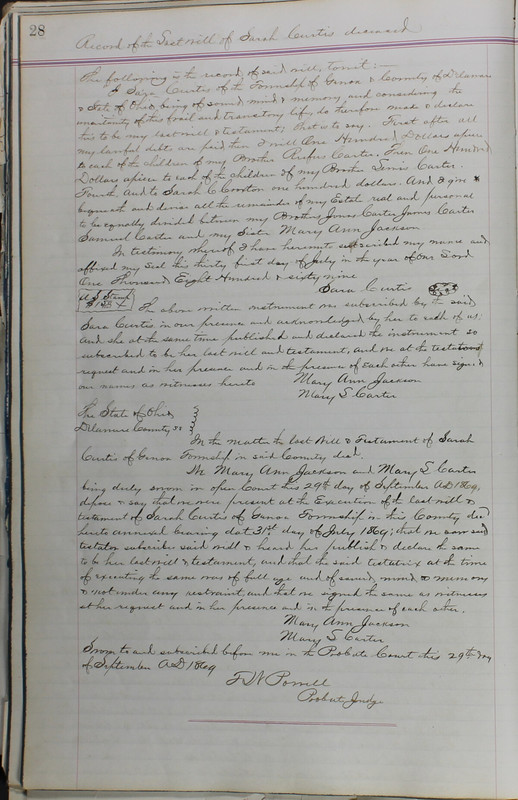 28
Record of the Last will of Sarah Curtis deceased
The following is the record of said will, to wit:—
I Sara Curtis of the Township of Genoa & County of Delaware
& State of Ohio, being of sound mind & memory and considering the
uncertainty of this frail and transitory life, do therefore make & declare
this to be my last will & testament, that is to say. First after all
my lawful debts are paid then I will One Hundred Dollars apiece
to each of the children of my Brother Rufus Carter. Then One Hundred
Dollars apiece to each of the children of my Brother Lewis Carter.
Fourth And to Sarah C one hundred dollars. And I give &
bequeath and devise all the remainder of my Estate real and personal
to be equally divided between my Brothers Jonas Carter James Carter
Samuel Carter and my Sister Mary Ann Jackson
In testimony whereof I have hereunto subscribed my name and
affixed my Seal this thirty first day of July in the year of our Lord
One Thousand Eight Hundred & sixty nine
Sara Curtis Seal
U.S. Stamp
The above written instrument was subscribed by the said
Sara Curtis in our presence and acknowledged by her to each of us;
And she at the same time published and declared the instrument so
subscribed to be her last will and testament, and we at the testators
request and in her presence and in the presence of each other have signed
our names as witnesses hereto
Mary Ann Jackson
Mary S Carter
The State of Ohio
Delaware County ss
In the matter the last Will & Testament of Sarah
Curtis of Genoa Township in said County decd.
We Mary Ann Jackson and Mary S Carter
being duly sworn in open Court this 29th day of September AD 1869,
depose & say that we were present at the Execution of the last will &
testament of Sarah Curtis of Genoa Township in this County decd
hereto annexed bearing dat 31st day of July 1869; that we saw said
testator subscribe said will & heard her publish & declare the same
to be her last will & testament, and that the said testatrix at the time
of executing the same was of full age and of sound mind & memory
& not under any restraint and that we signed the same as witnesses
at her request and in her presence and in the presence of each other.
Mary Ann Jackson
Mary S Carter
Sworn to and subscribed before me in the Probate Court this 29th day
of September AD 1869
T W Powell
Probate Judge